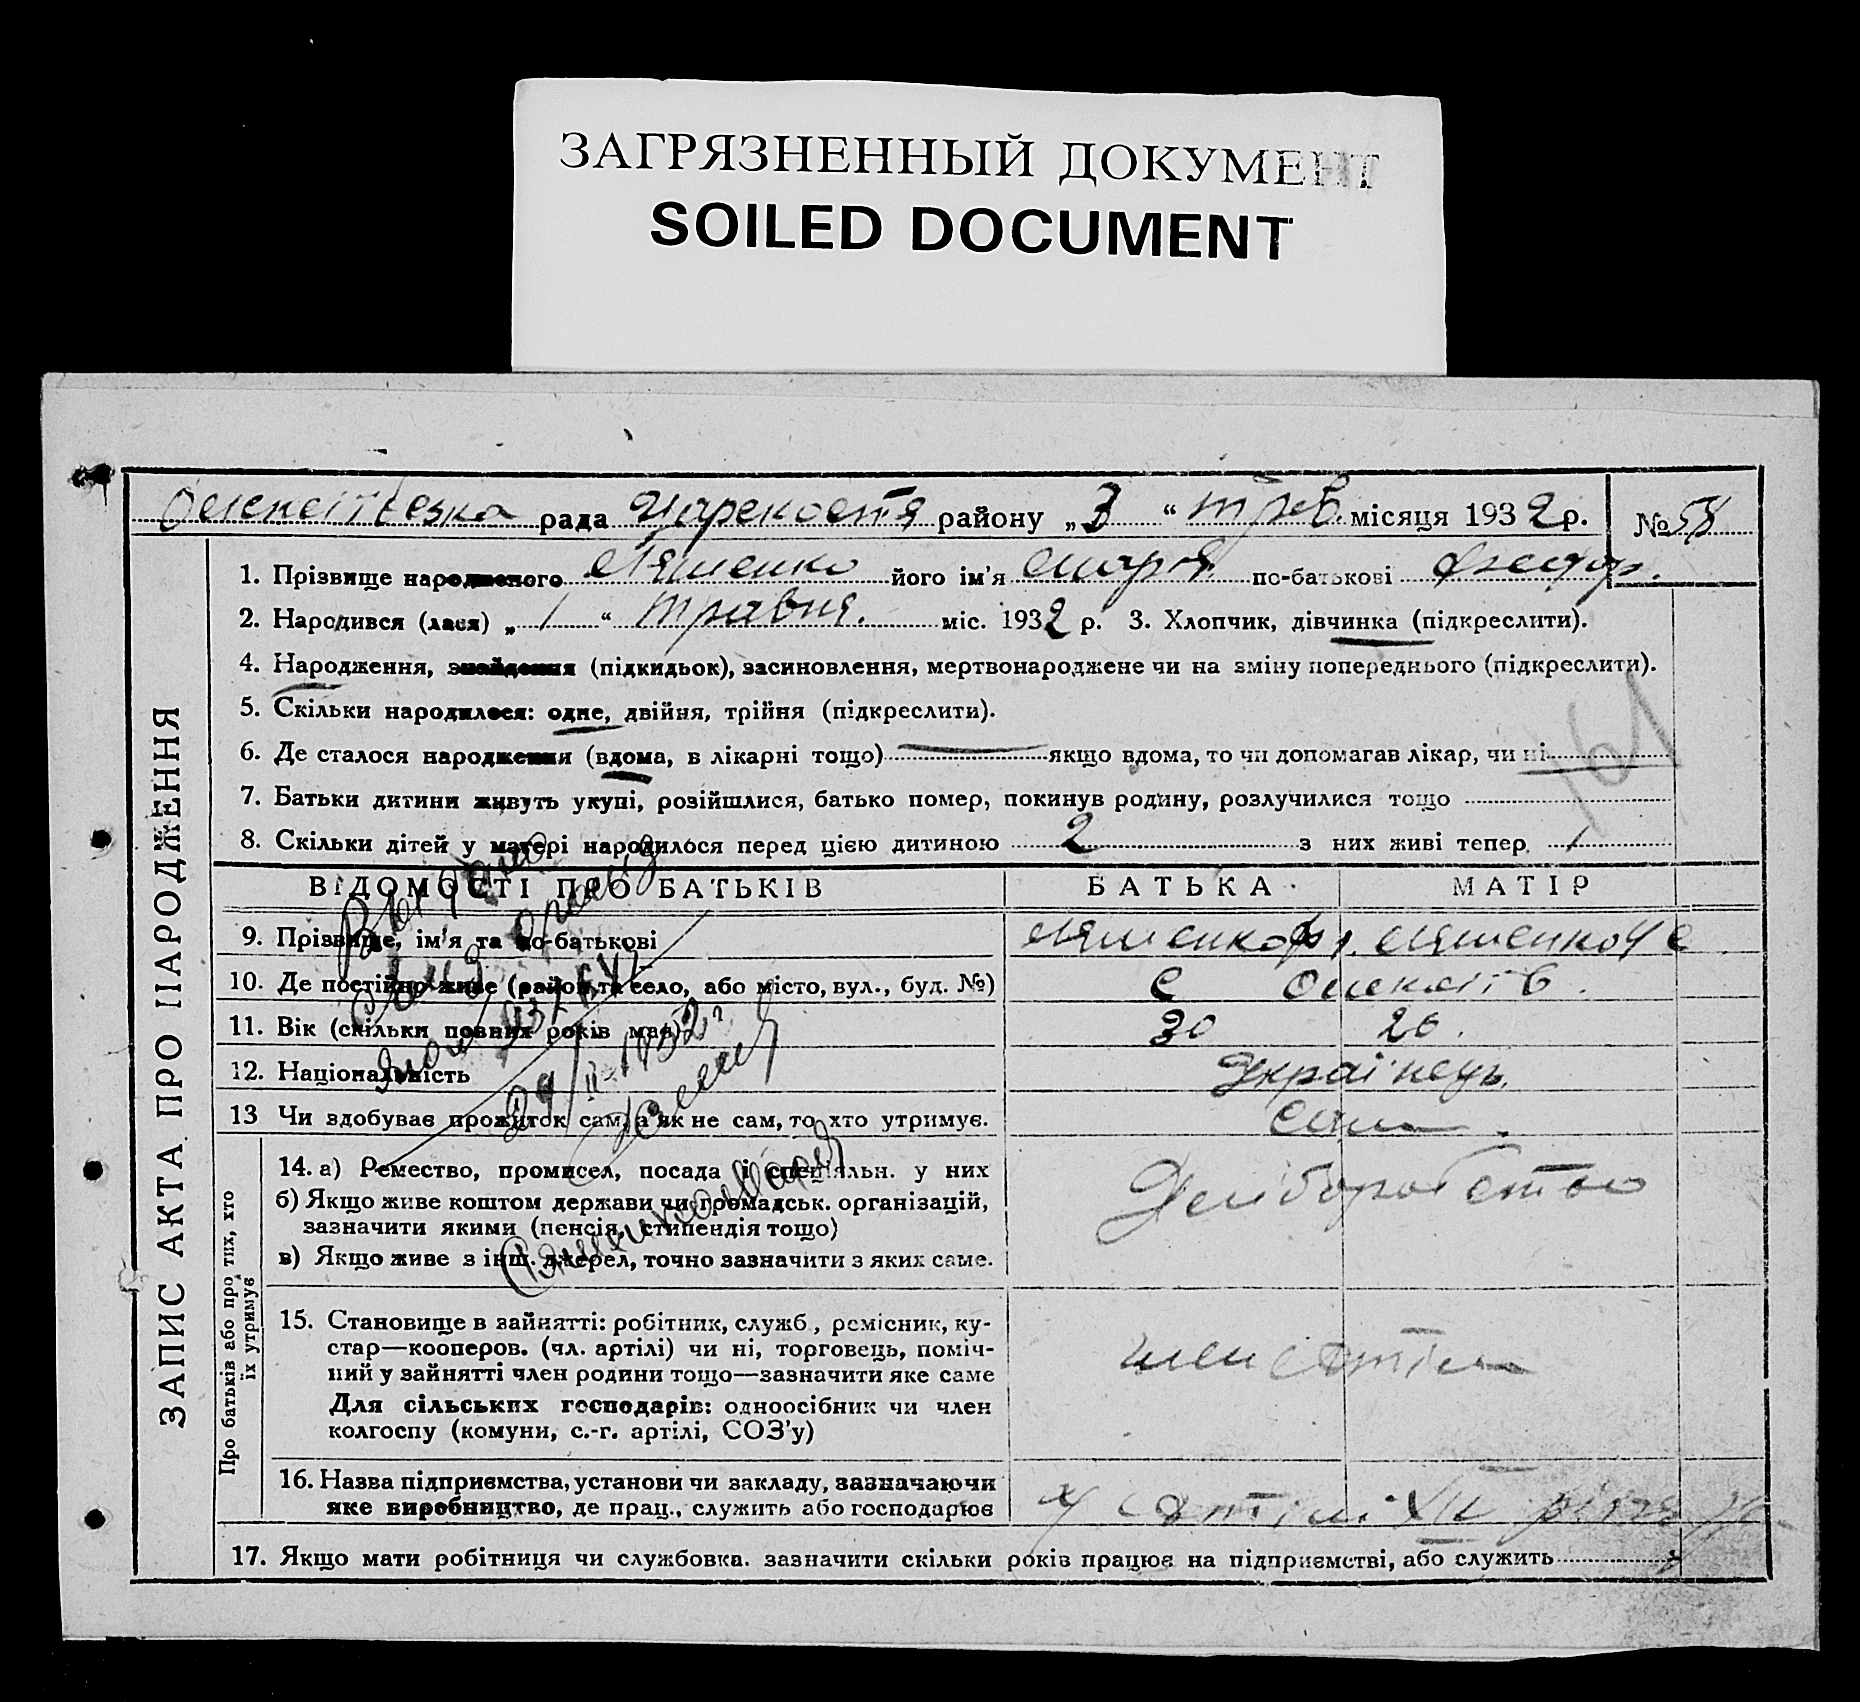 ЗАГРЯЗНЕННЫЙ ДОКУМЕНТ
SOILED DOCUMENT
рада району „3 “ трав. місяця 1932 р. № 58
ЗАПИС АКТА ПРО НАРОДЖЕННЯ
1. Прізвище народженого Ляшенко його ім'я Марія по-батькові Федор.
2. Народився (лася) „ 1 “ травня. міс. 1932 р. 3. Хлопчик, дівчинка (підкреслити).
4. Народження, знайдення (підкидьок), засиновлення, мертвонароджене чи на зміну попереднього (підкреслити).
5. Скільки народилося: одне, двійня, трійня (підкреслити).
6. Де сталося народження (вдома, в лікарні тощо) якщо вдома, то чи допомагав лікар, чи ні
61
7. Батьки дитини живуть укупі, розійшлися, батько помер, покинув родину, розлучилися тощо
8. Скільки дітей у матері народилося перед цією дитиною 2 з них живі тепер 1
ВІДОМОСТІ ПРО БАТЬКІВ БАТЬКА МАТІР
9. Прізвище, ім'я та по-батькові Ляшенко Ф Ляшенко
10. Де постійно живе (район та село, або місто, вул., буд. №) с
11. Вік (скільки повних років має) 30 26.
12. Національність Українець
13 Чи здобуває прожиток сам, а як не сам, то хто утримує. сами
Про батьків або про тих, хто їх утримує
14. а) Ремество, промисел, посада і спеціяльн. у них
б) Якщо живе коштом держави чи громадськ. організацій,
зазначити якими (пенсія, стипендія тощо)
в) Якщо живе з інш. джерел, точно зазначити з яких саме.
15. Становище в зайнятті: робітник, служб., ремісник, ку-
стар—кооперов. (чл. артілі) чи ні, торговець, поміч-
ний у зайнятті член родини тощо—зазначити яке саме
Для сільських господарів: одноосібник чи член
колгоспу (комуни, с.-г. артілі, СОЗ'у)
член
16. Назва підприємства, установи чи закладу, зазначаючи
яке виробництво, де прац., служить або господарює
у
17. Якщо мати робітниця чи службовка. зазначити скільки років працює на підприємстві, або служить